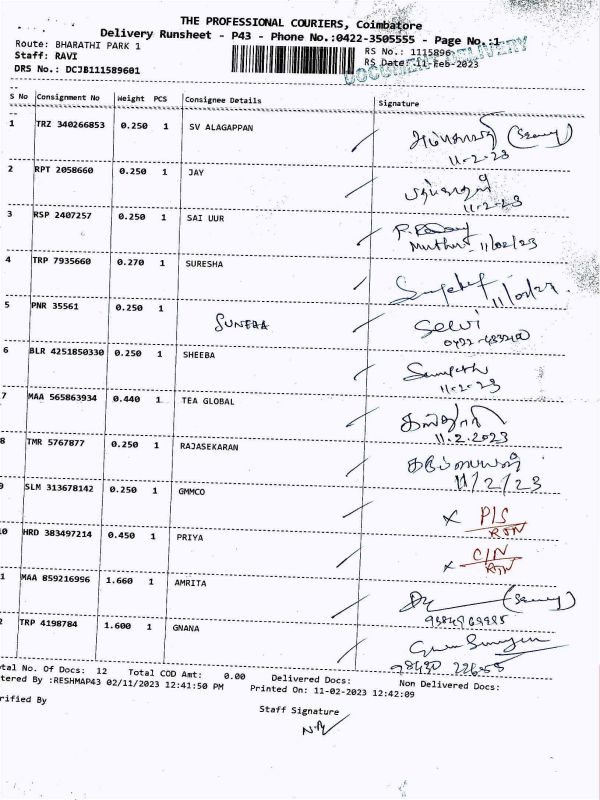 THE PROFESSIONAL COURIERS, Coimbatore
Delivery Runsheet - P43 - Phone No.:0422-3505555 - Page No.:1
Route: BHARATHI PARK 1
RS No.: 1115896
Staff: RAVI
RS Date: 11-Feb-2023
DRS No.: DCJB111589601
DELIVERY
S No Consignment No Weight PCS Consignee Details Signature
1 TRZ 340266853 0.250 1 SV ALAGAPPAN
11-2-23
2 RPT 2058660 0.250 1 JAY
11-2-23
3 RSP 2407257 0.250 1 SAI UUR
Muthu 11/02/23
4 TRP 7935660 0.270 1 SURESHA
5 PNR 35561 0.250 1 Selvi
0422-
6 BLR 4251850330 0.250 1 SHEEBA
11-2-23
7 MAA 565863934 0.440 1 TEA GLOBAL
11.2.2023
8 TMR 5767877 0.250 1 RAJASEKARAN
11/2/23
9 SLM 313678142 0.250 1 GMMCO x P/S
RTN
10 HRD 383497214 0.450 1 PRIYA x C/N
RTN
1 MAA 859216996 1.660 1 AMRITA
2 TRP 4198784 1.600 1 GNANA
otal No. Of Docs: 12 Total COD Amt: 0.00 Delivered Docs: Non Delivered Docs:
tered By :RESHMAP43 02/11/2023 12:41:50 PM Printed On: 11-02-2023 12:42:09
rified By
Staff Signature